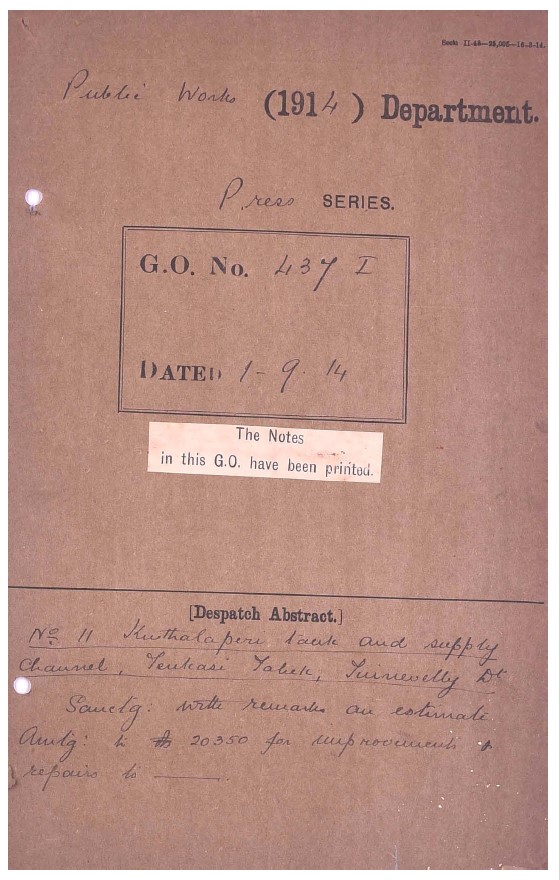 Public Works (1914) Department.
Press SERIES.
G.O. No. 437 I
DATED 1-9.14
The Notes
in this G.O. have been printed.
[Despatch Abstract.]
No 11 Kuthalaperi tank and supply
channel, Tenkasi Taluk, Tinnevelly Dt
Sanctg: with remarks an estimate
Amtg: to Rs 20350 for improvements &
repairs to ———.